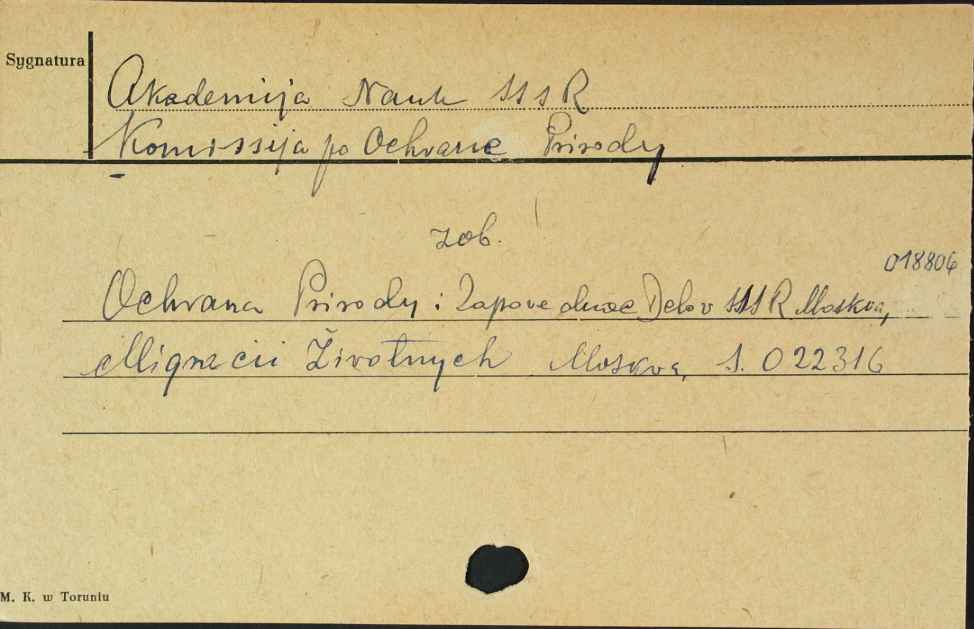 Sygnatura
Akademija Nauk SSSR
Komissija po Ochrane Prirody
zob.
018806
Ochrana Prirody i Zapovednoe Delo v SSSR Moskva,
Migracii Životnych Moskva, S. 022316
M. K. w Toruniu